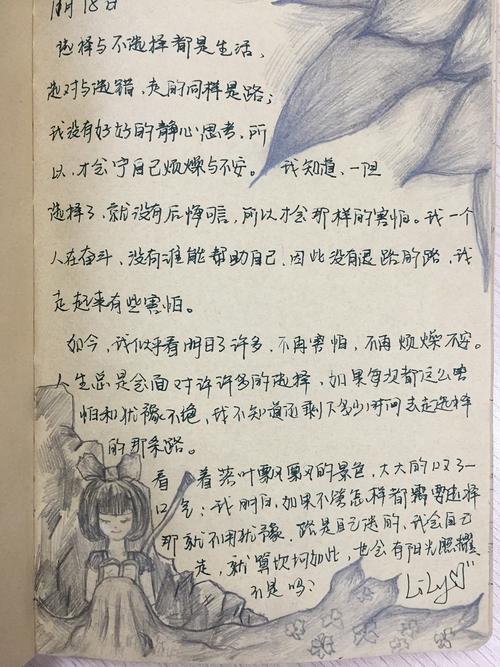 月18日
选择与不选择都是生活,
选对与选错,走的同样是路;
我没有好好的静心思考,所
以,才会令自己烦燥与不安。 我知道,一旦
选择了,就没有后悔可言,所以才会那样的害怕。我一个
人在奋斗,没有谁能帮助自己,因此没有退路的路,我
走起来有些害怕。
如今,我似乎看明白了许多,不再害怕,不再烦燥不安。
人生总是会面对许许多的选择,如果每次都这么害
怕和犹豫不绝,我不知道还剩下多少时间去走选择
的那条路。
看着落叶飘飘的景色,大大的叹了一
口气:我明白,如果不管怎样都需要选择
那就不用犹豫,路是自己选的,我会自己
走,就算坎坷如此,也会有阳光照耀
不是吗?
Lily